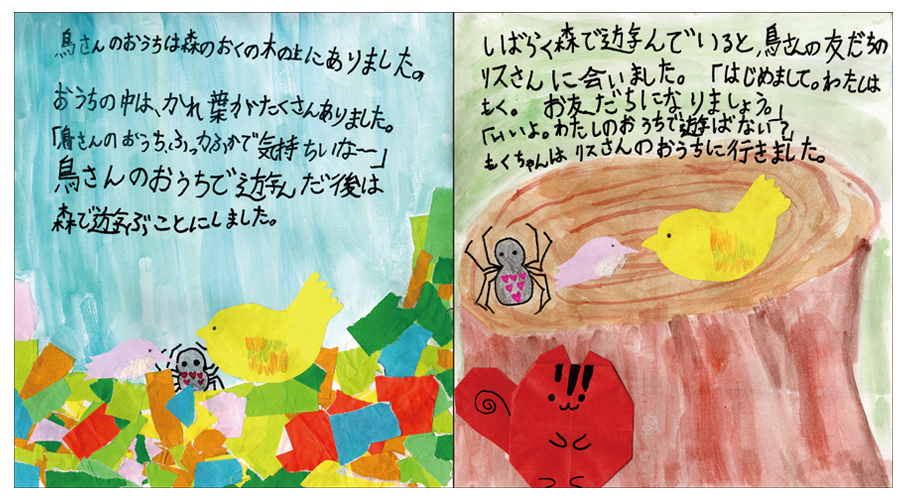 鳥さんのおうちは森のおくの木の上にありました。
おうちの中は、かれ葉がたくさんありました。
「鳥さんのおうち、ふっかふかで気持ちいな〜」
鳥さんのおうちで遊んだ後は
森で遊ぶことにしました。
しばらく森で遊んでいると、鳥さんの友だちの
リスさんに会いました。「はじめまして。わたしは
もく。お友だちになりましょう。」
「いいよ。わたしのおうちで遊ばない?」
もくちゃんはリスさんのおうちに行きました。